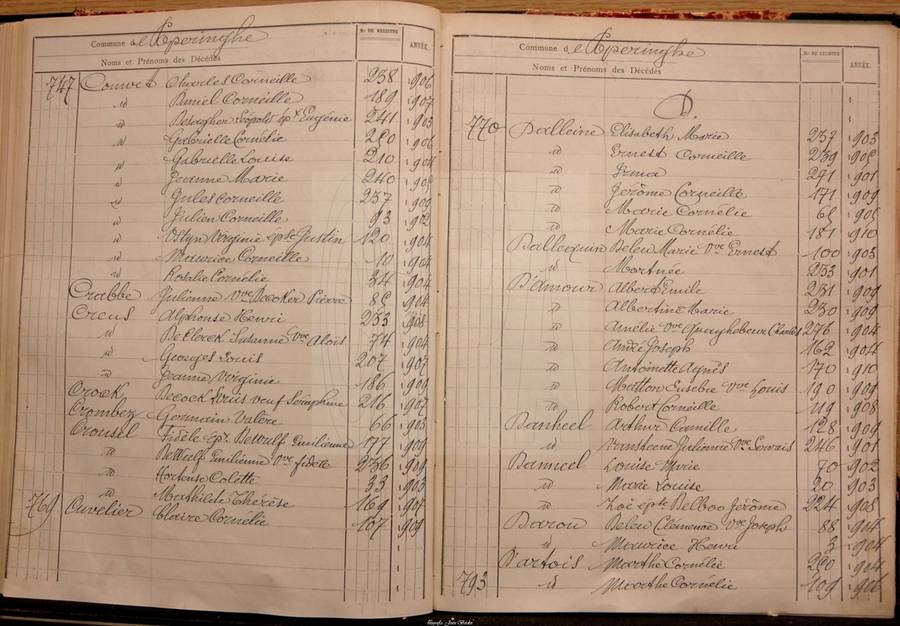 Commune de Poperinghe
Noms et Prénoms des Décédés No DE REGISTRE ANNÉE.
747 Couvet Charles Corneille 238 906
id Daniel Corneille 189 907
id Léopold ép. Eugénie 241 903
id Gabrielle Cornélie 220 906
id Gabrielle Louise 210 904
id Jeanne Marie 240 905
id Jules Corneille 257 909
id Julien Corneille 93 902
id Ostyn Virginie épse Justin 120 904
id Maurice Corneille 10 904
id Rosalie Cornélie 34 904
Crabbe Julienne Vve Decocker Pierre 86 904
Creus Alphonse Henri 253 908
id Declerck Suzanne Vve Aloïs 74 904
id Georges Louis 207 907
id Jeanne Virginie 186 904
Crock Decock Louis veuf Séraphine 216 907
Crombez Germain Valère 66 903
Crousel Fidèle ép. Dewulf Emilienne 177 909
id Dewulf Emilienne Vve Fidèle 256 909
id Hortense Colette 33 903
id Mathilde Thérèse 169 907
769 Cuvelier Claire Cornélie 107 909
Commune de Poperinghe
Noms et Prénoms des Décédés No DE REGISTRE ANNÉE.
D.
770 Dalleine Elisabeth Marie 257 903
id Ernest Corneille 259 905
id Irma 241 901
id Jérôme Corneille 171 909
id Marie Cornélie 61 905
id Marie Cornélie 181 910
Dallequin Beleu Marie Vve Ernest 100 903
id Mortnée 233 901
D'amour Albert Emile 231 909
id Albertine Marie 230 909
id Amélie Vve Quaghebeur Charles 276 904
id André Joseph 162 904
id Antoinette Agnès 170 910
id Matton Eusebie Vve Louis 190 909
id Robert Corneille 119 908
Danheel Arthur Camille 128 909
id Julienne Vve Servais 246 901
Danneel Louise Marie 70 902
id Marie Louise 20 903
id Zoé épse Delboo Jérôme 224 908
Darou Beleu Clémence Vve Joseph 88 904
id Maurice Henri 3 904
D'artois Marthe Cornélie 220 904
793 id Marthe Cornélie 109 906